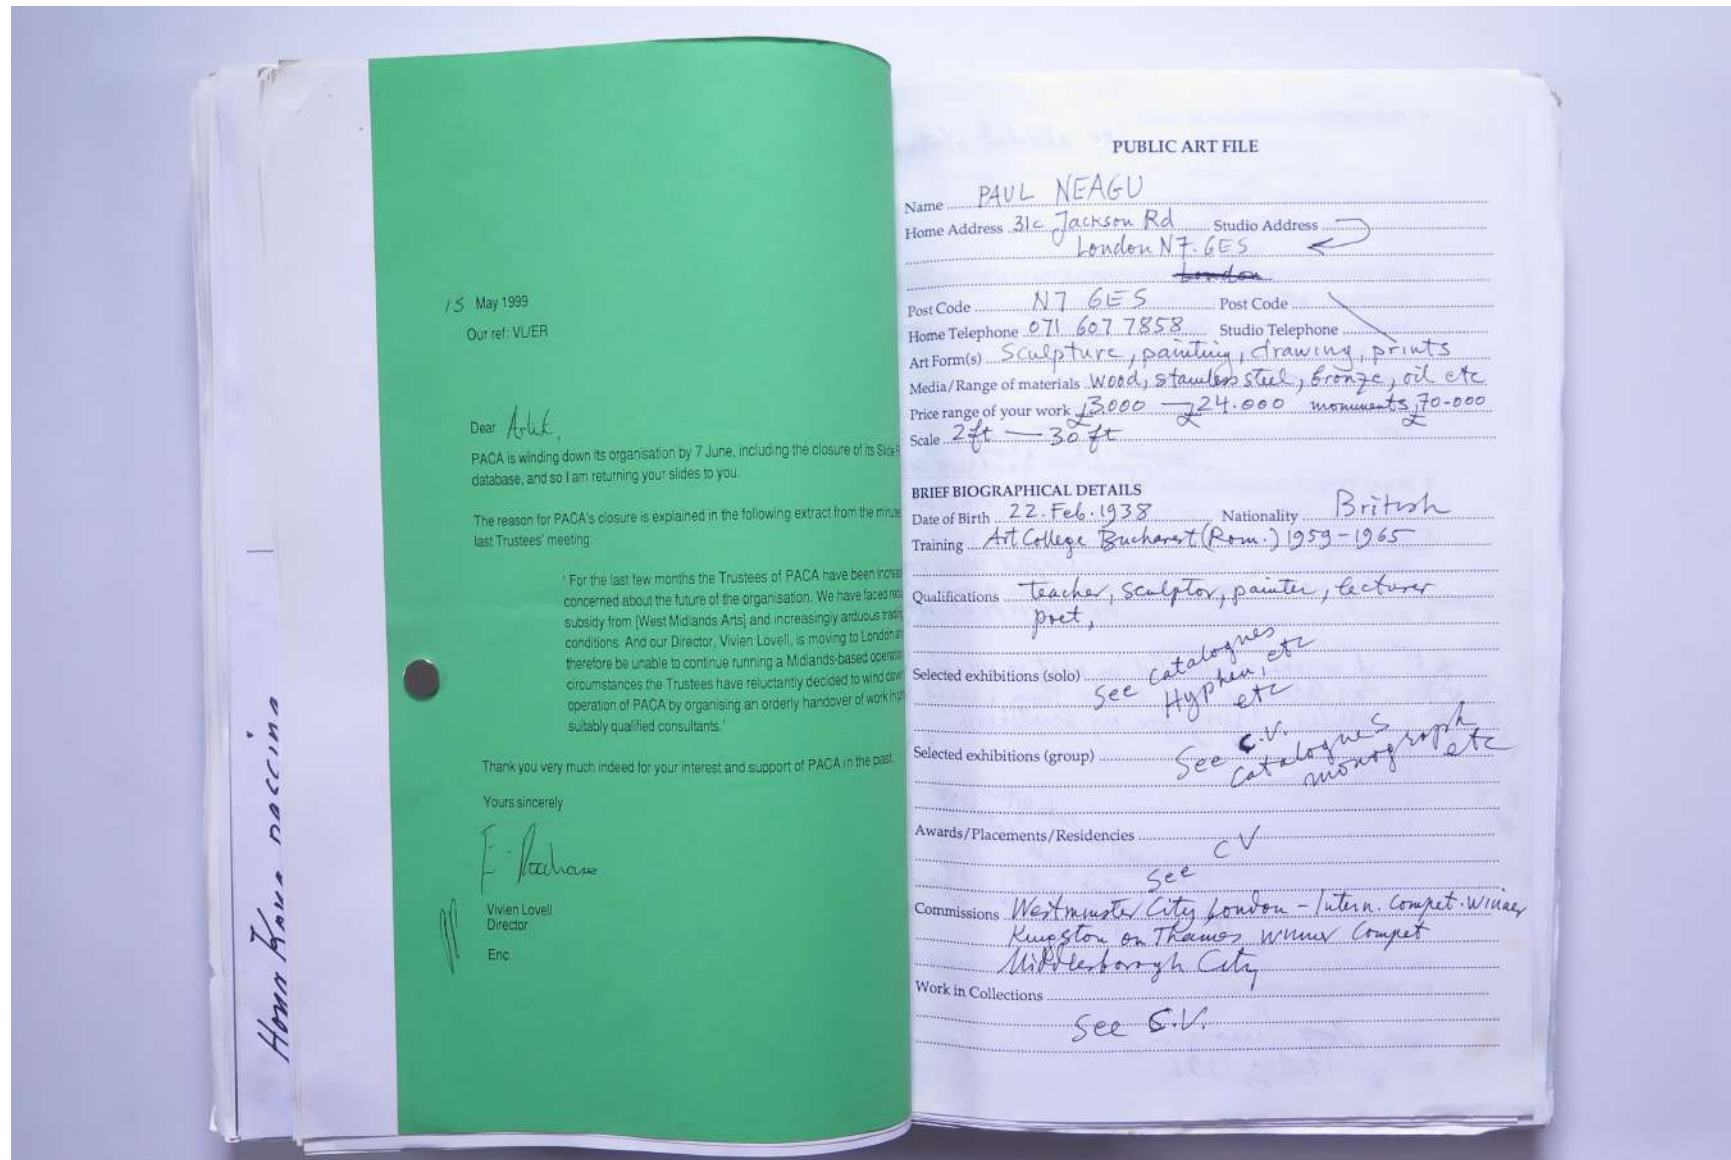 15 May 1999
Our ref: VL/ER
Dear Artist,
PACA is winding down its organisation by 7 June, including the closure of its Slide
database, and so I am returning your slides to you.
The reason for PACA's closure is explained in the following extract from the
last Trustees' meeting:
' For the last few months the Trustees of PACA have been
concerned about the future of the organisation. We have faced
subsidy from [West Midlands Arts] and increasingly arduous trading
conditions. And our Director, Vivien Lovell, is moving to London
therefore be unable to continue running a Midlands-based
circumstances the Trustees have reluctantly decided to wind down
operation of PACA by organising an orderly handover of work in
suitably qualified consultants.'
Thank you very much indeed for your interest and support of PACA in the past.
Yours sincerely
Vivien Lovell
Director
Enc
PUBLIC ART FILE
Name PAUL NEAGU
Home Address 31c Jackson Rd Studio Address
London N7. 6ES
London
Post Code N7 6ES Post Code
Home Telephone 071 607 7858 Studio Telephone
Art Form(s) Sculpture, painting, drawing, prints
Media/Range of materials Wood, stainless steel, bronze, oil etc
Price range of your work £3.000 — £24.000 monuments £70-000
Scale 2ft — 30 ft
BRIEF BIOGRAPHICAL DETAILS
Date of Birth 22. Feb. 1938 Nationality British
Training Art College Bucharest (Rom.) 1959-1965
Qualifications teacher, sculptor, painter, lecturer
poet,
Selected exhibitions (solo) See Catalognes
Hyphen, etc
etc
Selected exhibitions (group) See C.V.
catalognes
monograph
etc
Awards/Placements/Residencies
See CV
Commissions Westminster City London - Intern. Compet. Winner
Kingston on Thames Winner Compet
Middlesborough City
Work in Collections
See C.V.